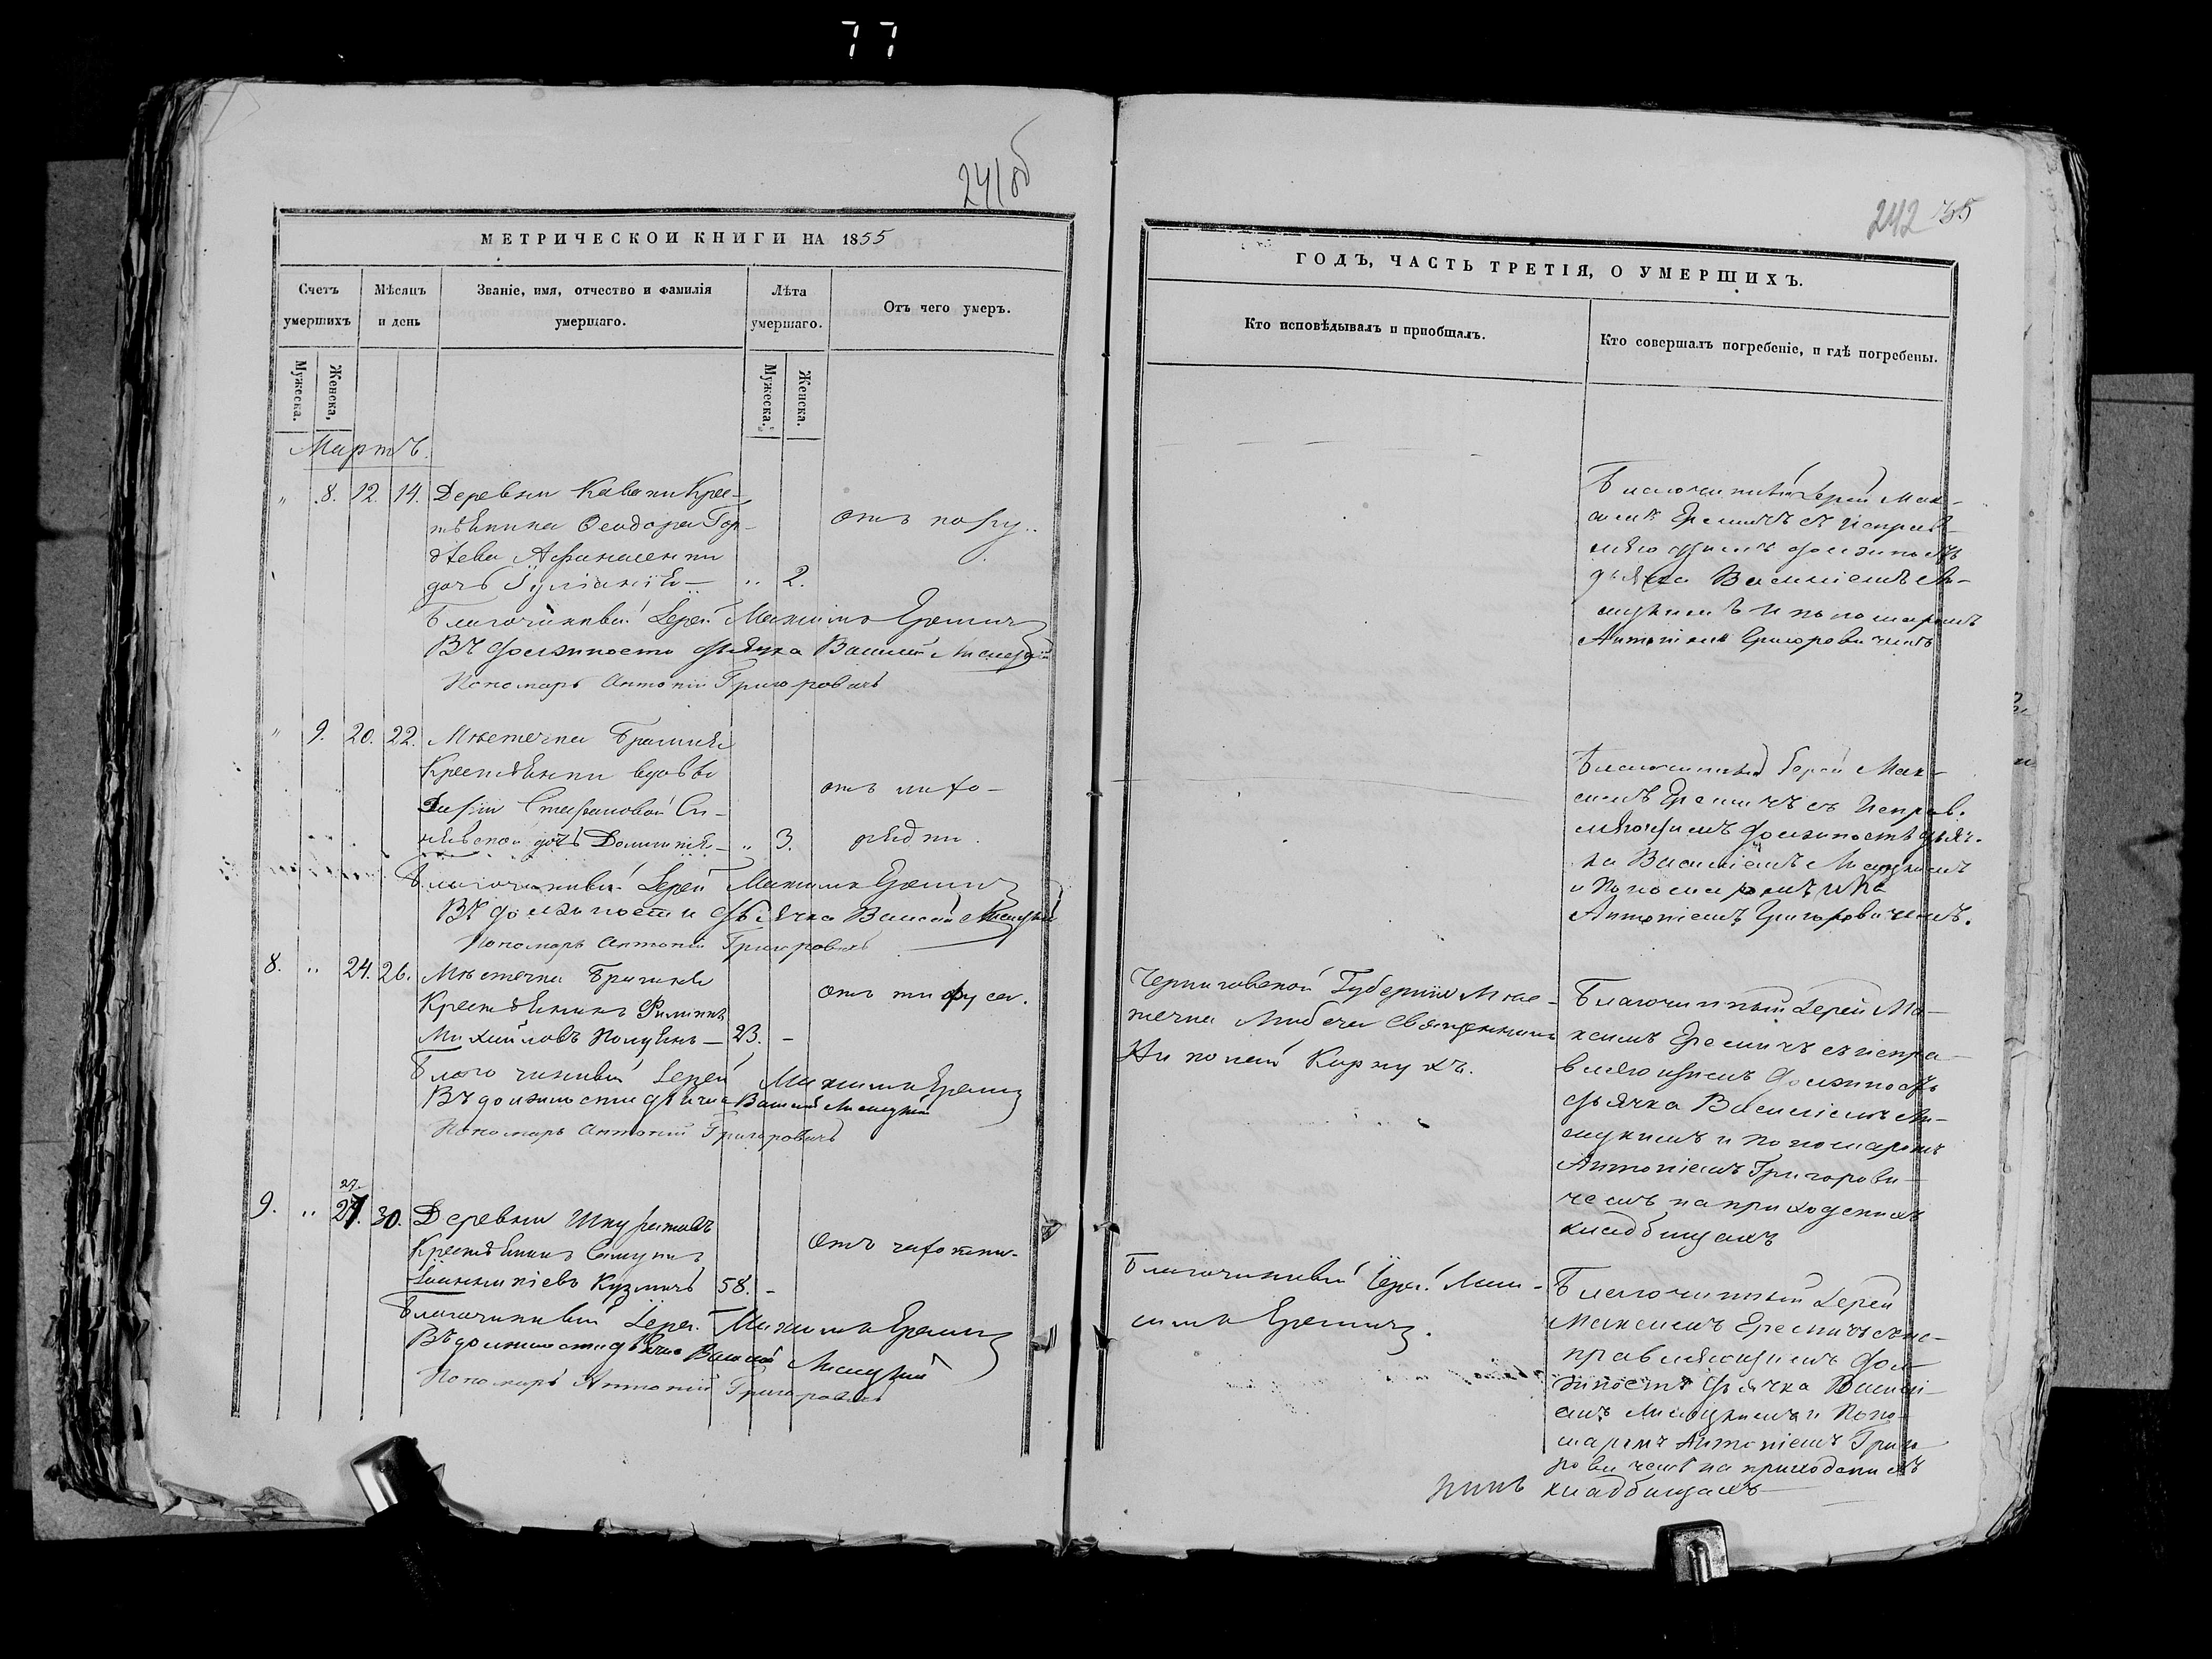 77
241об
МЕТРИЧЕСКОЙ КНИГИ НА 1855
Счетъ умершихъ
Мѣсяцъ и день
Званіе, имя, отчество и фамилія умершаго.
Лѣта умершаго.
Отъ чего умеръ.
Мужеска.
Женска,
Мужеска.
Женска.
Мартъ.
" 8. 12. 14. Деревни Кре-
стьянина Ѳеодора Гор-
дѣева
дочь Іуліанія — " 2.
отъ
Благочинный Іерей Максимъ Еремичъ
Въ должности дьячка Василій Лисицкій
Пономарь Антоній Григоровичъ
" 9. 20. 22. Мѣстечка Брагиня
Крестьянки вдовы
Стефановой
дочь Домникія — " 3.
отъ
Благочинный Іерей Максимъ Еремичъ
Въ должности дьячка Василій Лисицкій
Пономарь Антоній Григоровичъ
8. " 24. 26. Мѣстечка Брагиня
Крестьянинъ Филиппъ
Михайловъ — 23. -
отъ тифуса.
Благочинный Іерей Максимъ Еремичъ
Въ должности дьячка Василій Лисицкій
Пономарь Антоній Григоровичъ
27.
9. " 27. 30. Деревни
Крестьянинъ
Кузмичъ 58. -
Отъ чахотки.
Благочинный Іерей Максимъ Еремичъ
Въ должности дьячка Василій Лисицкій
Пономарь Антоній Григоровичъ
242 35
ГОДЪ, ЧАСТЬ ТРЕТІЯ, О УМЕРШИХЪ.
Кто исповѣдывалъ и пріобщалъ.
Кто совершалъ погребеніе, и гдѣ погребены.
Благочинный Іерей Мак-
симъ Еремичъ съ исправ-
ляющимъ должность
дьячка Василіемъ Ли-
сицкимъ и пономаремъ
Антоніемъ Григоровичемъ
Благочинный Іерей Мак-
симъ Еремичъ съ исправ-
ляющимъ должность дьяч-
ка Василіемъ Лисицкимъ
и Пономаремъ
Антоніемъ Григоровичемъ.
Черниговской Губерніи Мѣс-
течка Любеча священникъ
Благочинный Іерей Ма-
ксимъ Еремичъ съ испра-
вляющимъ должность
дьячка Василіемъ Ли-
сицкимъ и пономаремъ
Антоніемъ Григорови-
чемъ на приходскихъ
кладбищахъ
Благочинный Іерей Мак-
симъ Еремичъ.
Благочинный Іерей
Максимъ Еремичъ съ ис-
правляющимъ дол-
жность дьячка Василі-
емъ Лисицкимъ и Поно-
маремъ Антоніемъ Григо-
ровичемъ на приходскихъ
кладбищахъ